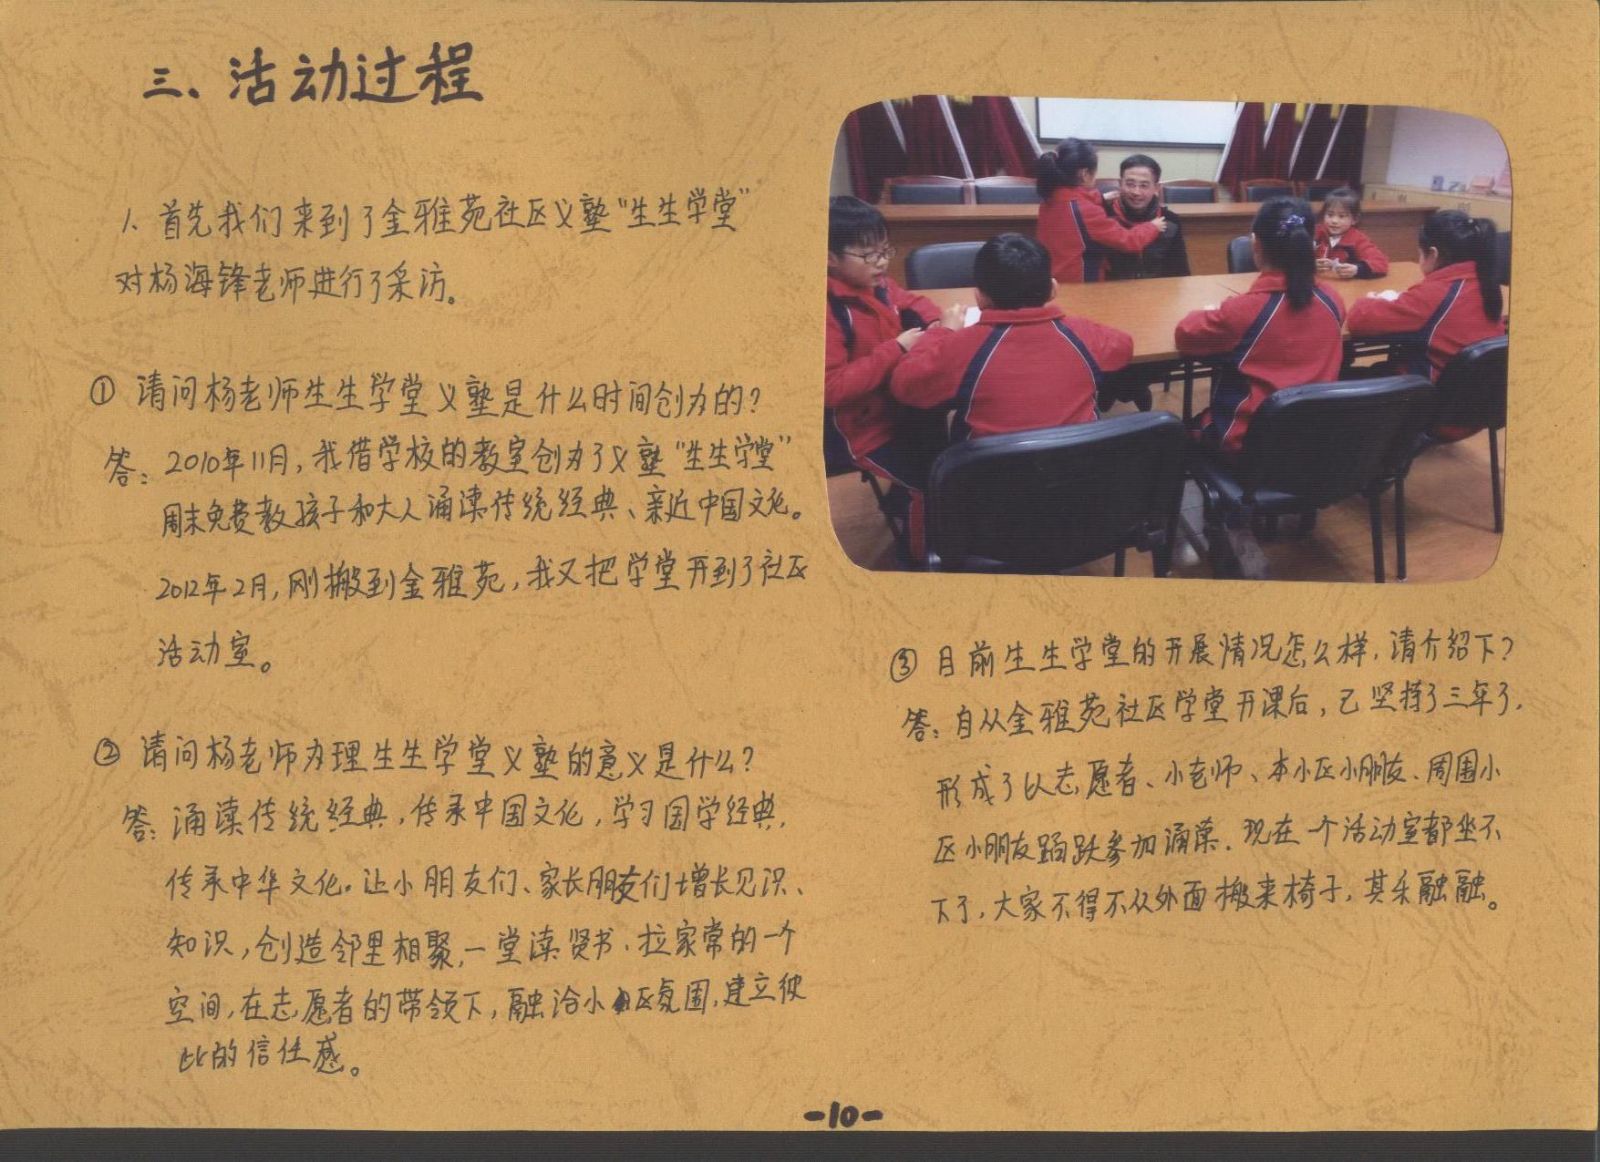 三、活动过程
1、首先我们来到了金雅苑社区义塾“生生学堂”
对杨海锋老师进行了采访。
① 请问杨老师生生学堂义塾是什么时间创办的？
答：2010年11月，我借学校的教室创办了义塾“生生学堂”
周末免费教孩子和大人诵读传统经典、亲近中国文化。
2012年2月，刚搬到金雅苑，我又把学堂开到了社区
活动室。
② 请问杨老师办理生生学堂义塾的意义是什么？
答：诵读传统经典，传承中国文化，学习国学经典，
传承中华文化。让小朋友们、家长朋友们增长见识、
知识，创造邻里相聚，一堂读贤书、拉家常的一个
空间，在志愿者的带领下，融洽小区氛围，建立彼
此的信任感。
③ 目前生生学堂的开展情况怎么样，请介绍下？
答：自从金雅苑社区学堂开课后，已坚持了三年了，
形成了以志愿者、小老师、本小区小朋友、周围小
区小朋友踊跃参加诵读，现在一个活动室都坐不
下了，大家不得不从外面搬来椅子，其乐融融。
-10-